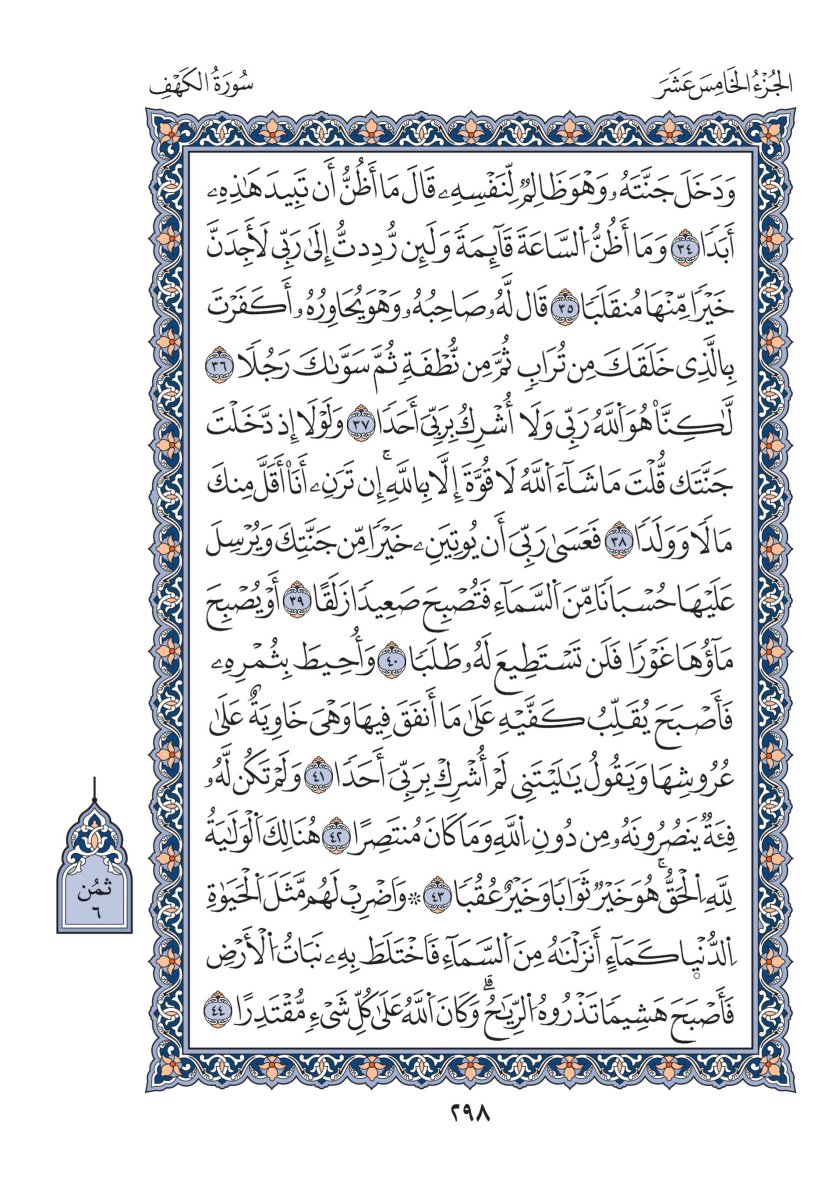 الجُزْءُ الخَامِسَ عَشَرَ
سُورَةُ الكَهْفِ
وَدَخَلَ جَنَّتَهُۥ وَهْوَ ظَالِمٌ لِّنَفْسِهِۦ قَالَ مَا أَظُنُّ أَن تَبِيدَ هَٰذِهِۦ
أَبَدًا ٣٤ وَمَا أَظُنُّ اُ۬لسَّاعَةَ قَآئِمَةً وَلَئِن رُّدِدتُّ إِلَىٰ رَبِّى لَأَجِدَنَّ
خَيْرًا مِّنْهَا مُنقَلَبًا ٣٥ قَال لَّهُۥ صَاحِبُهُۥ وَهْوَ يُحَاوِرُهُۥ أَكَفَرْتَ
بِالَّذِى خَلَقَكَ مِن تُرَابٍ ثُمَّ مِن نُّطْفَةٍ ثُمَّ سَوَّىٰكَ رَجُلًا ٣٦
لَّٰكِنَّا۠ هُوَ اَ۬للَّهُ رَبِّى وَلَا أُشْرِكُ بِرَبِّىَ أَحَدًا ٣٧ وَلَوْلَا إِذ دَّخَلْتَ
جَنَّتَك قُّلْتَ مَا شَآءَ اَ۬للَّهُ لَا قُوَّةَ إِلَّا بِاللَّهِۚ إِن تَرَنِۦ أَنَا۠ أَقَلَّ مِنكَ
مَالًا وَوَلَدًا ٣٨ فَعَسَىٰ رَبِّىَ أَن يُوتِيَنِۦ خَيْرًا مِّن جَنَّتِكَ وَيُرْسِلَ
عَلَيْهَا حُسْبَانًا مِّنَ اَ۬لسَّمَآءِ فَتُصْبِحَ صَعِيدًا زَلَقًا ٣٩ أَوْ يُصْبِحَ
مَآؤُهَا غَوْرًا فَلَن تَسْتَطِيعَ لَهُۥ طَلَبًا ٤٠ وَأُحِيطَ بِثُمْرِهِۦ
فَأَصْبَحَ يُقَلِّبُ كَفَّيْهِ عَلَىٰ مَا أَنفَقَ فِيهَا وَهْىَ خَاوِيَةٌ عَلَىٰ
عُرُوشِهَا وَيَقُولُ يَٰلَيْتَنِى لَمْ أُشْرِكْ بِرَبِّىَ أَحَدًا ٤١ وَلَمْ تَكُن لَّهُۥ
فِئَةٌ يَنصُرُونَهُۥ مِن دُونِ اِ۬للَّهِ وَمَا كَانَ مُنتَصِرًا ٤٢ هُنَالِكَ اَ۬لْوَلَٰيَةُ
لِلَّهِ اِ۬لْحَقُّۚ هُوَ خَيْرٌ ثَوَابًا وَخَيْرٌ عُقُبًا ٤٣ ۞ وَاَضْرِبْ لَهُم مَّثَلَ اَ۬لْحَيَوٰةِ
اِ۬لدُّنْيَا كَمَآءٍ أَنزَلْنَٰهُ مِنَ اَ۬لسَّمَآءِ فَاَخْتَلَط بِهِۦ نَبَاتُ اُ۬لْأَرْضِ
فَأَصْبَحَ هَشِيمًا تَذْرُوهُ اُ۬لرِّيَٰحُۗ وَكَانَ اَ۬للَّهُ عَلَىٰ كُلِّ شَىْءٍ مُّقْتَدِرًا ٤٤
ثُمُن
٦
٢٩٨